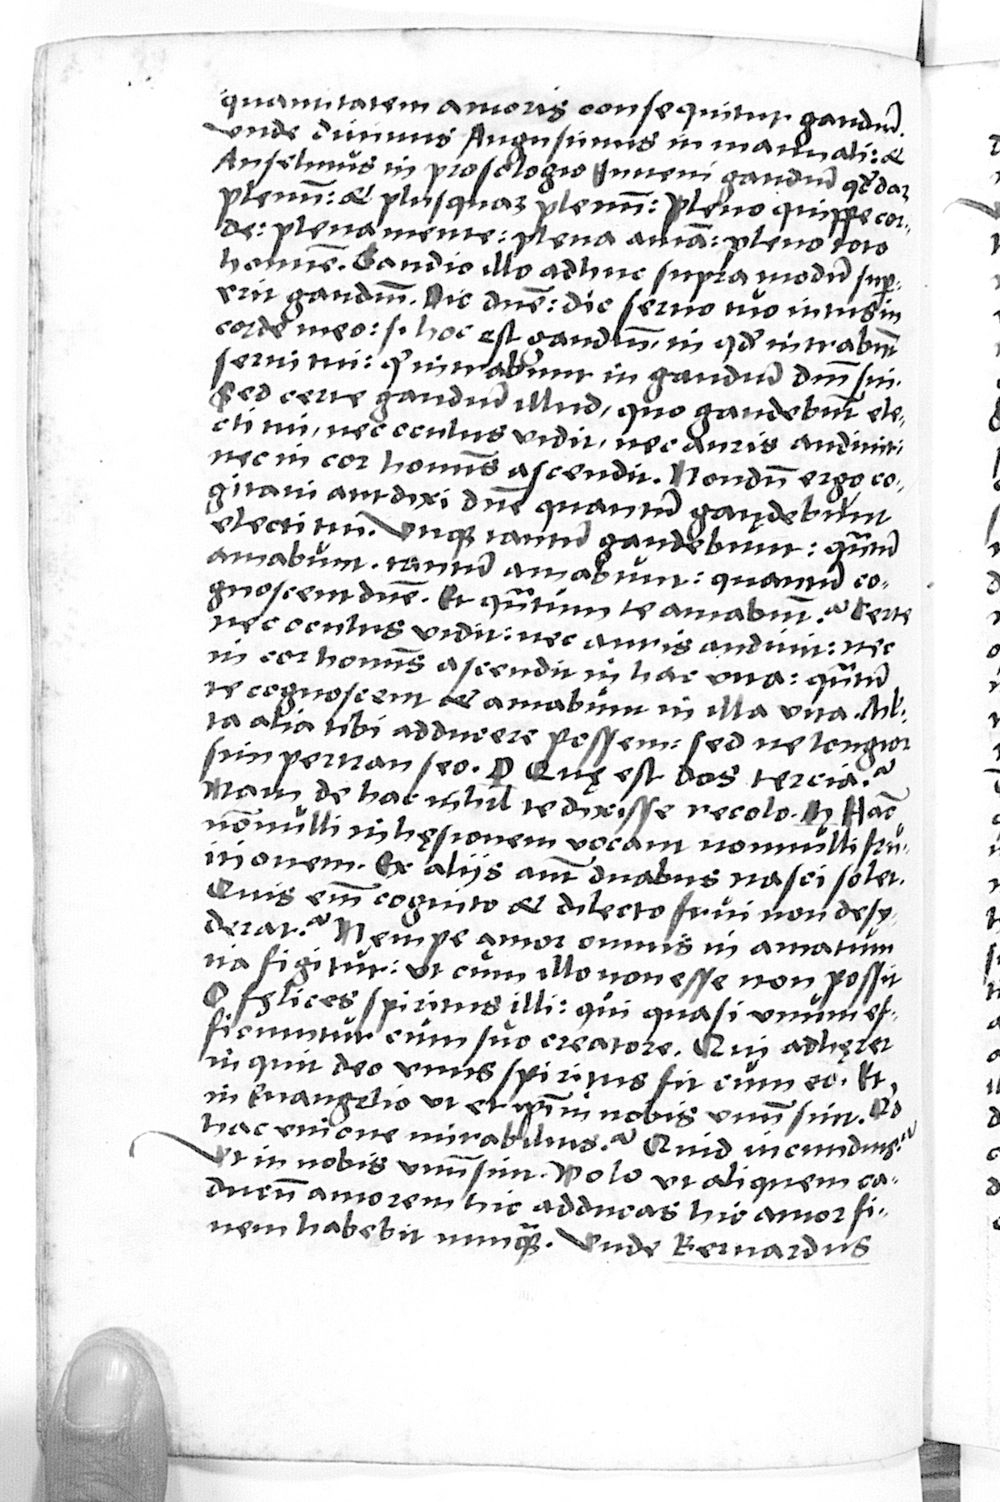 quantitatem amoris consequitur gaudiū.
Unde diuinus Augustinus in manuali: &
Anselmus in prosologio Inueni gaudiū qđdaz
plenū: & plusquaz plenū: pleno quippe cor-
de: plena mente: plena aīa: pleno toto
homīe. Gaudio illo adhuc supra modū sup̄-
erit gaudiū. Dic dn̄e: dic seruo tuo intus in
corde meo: si hoc est gaudiū, in qđ intrabūt
serui tui: q̄ intrabunt in gaudiū dn̄i sui.
Sed certe gaudiū illud, quo gaudebūt ele-
cti tui, nec oculus vidit, nec auris audiuit:
nec in cor homīs ascendit. Nondū ergo co-
gitaui aut dixi dn̄e quantū gaudebunt
electi tui. Utiq; tantū gaudebunt: qūtū
amabunt. tantū amabunt: quantū co-
gnoscent dn̄e. Et qūtum te amabūt? Certe
nec oculus vidit: nec auris audiuit: nec
in cor homīs ascendit in hac vita: qūtū
te cognoscent & amabunt in illa vita. Mł-
ta alia tibi adducere possem: sed ne longior
sim pertranseo. D Quę est dos tercia?
Nam de hac nihil te dixisse recolo. M Hāc
nōnulli inhęsionem vocant nonnulli fru-
itionem. Ex aliis aūt duabus nasci solet.
Quis em̄ cognito & dilecto frui non desy-
derat? Nempe amor omnis in amatum
ita figitur: ut cum illo non esse non possit
O fęlices spiritus illi: qui quasi vnum ef-
ficiuntur cum suo creatore. Qui adhęret
inquit deo vnus spiritus fit cum eo. Et
in Euangelio ut et ip̄i in nobis vnū sint. Qđ
hac vnione mirabilius? Quid iucundius?
Ut in nobis vnū sint. Volo ut aliquem ca-
ducū amorem hic adducas hic amor fi-
nem habebit nunq̄. Unde Bernardus